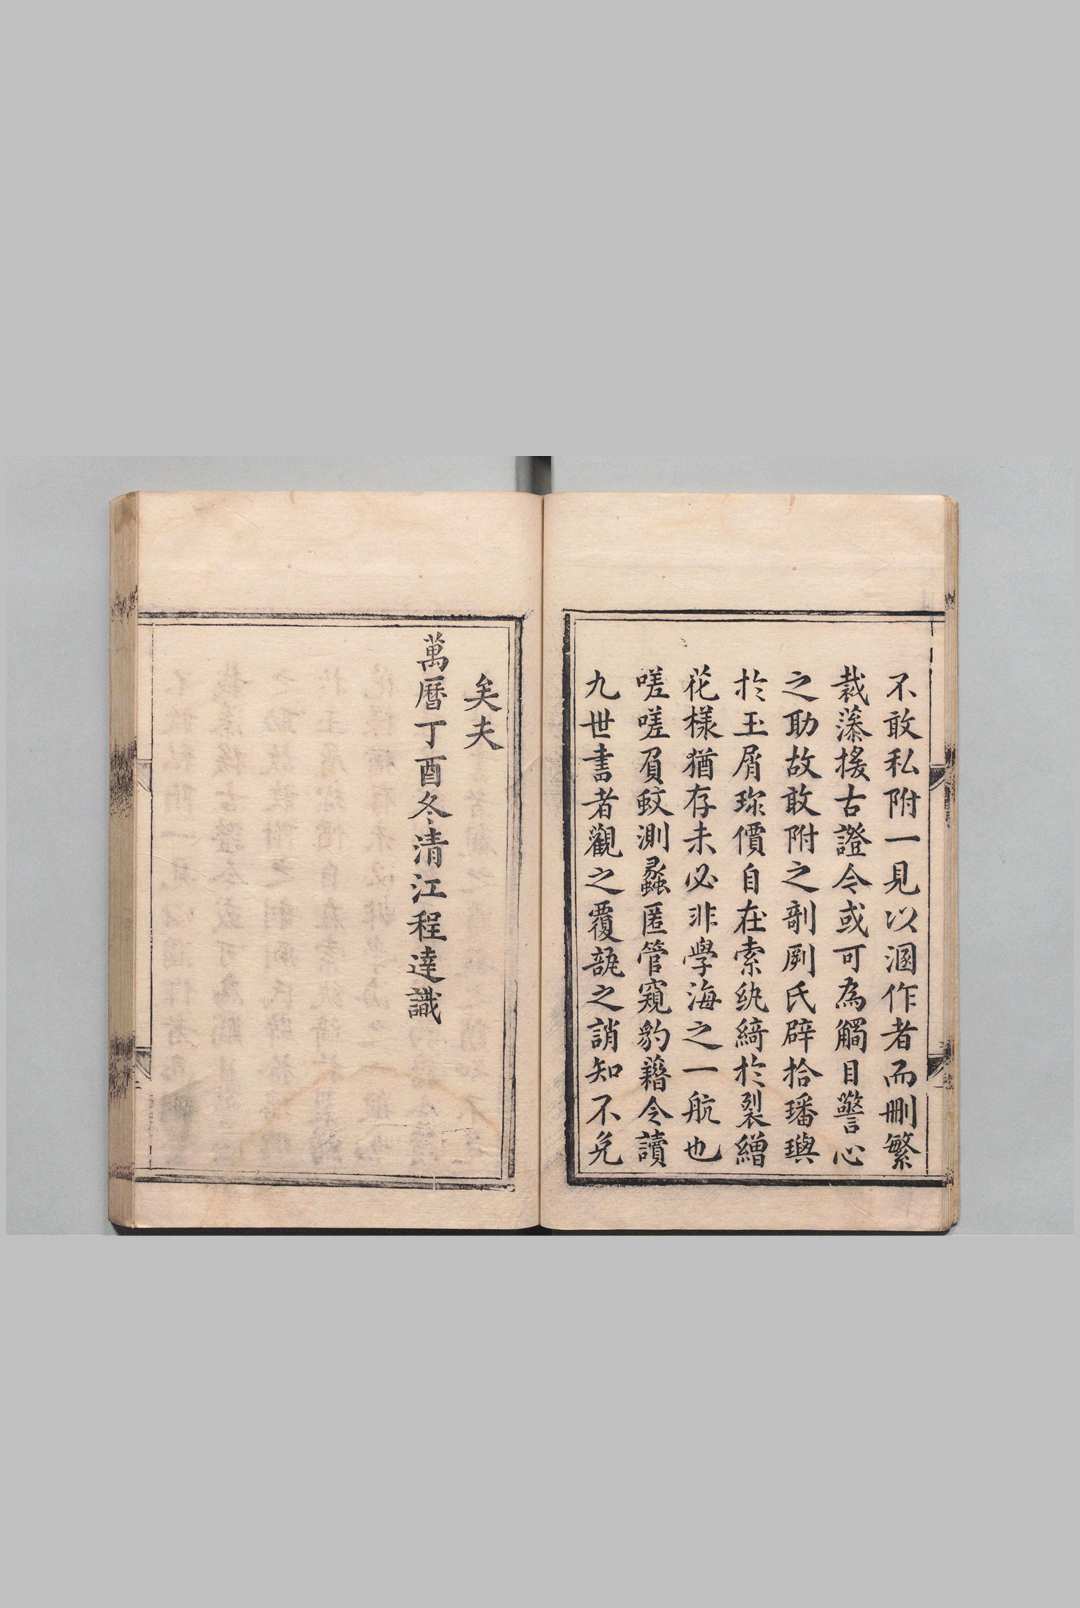 不敢私附一見以溷作者而刪繁
裁藻援古證今或可為觸目警心
之助故敢附之剞劂氏辟拾璠璵
於玉屑珎價自在索紈綺於裂繒
花樣猶存未必非學海之一航也
嗟嗟負蚊測蠡匿管窺豹藉令讀
九世書者觀之覆瓿之誚知不免
矣夫
萬曆丁酉冬清江程達識